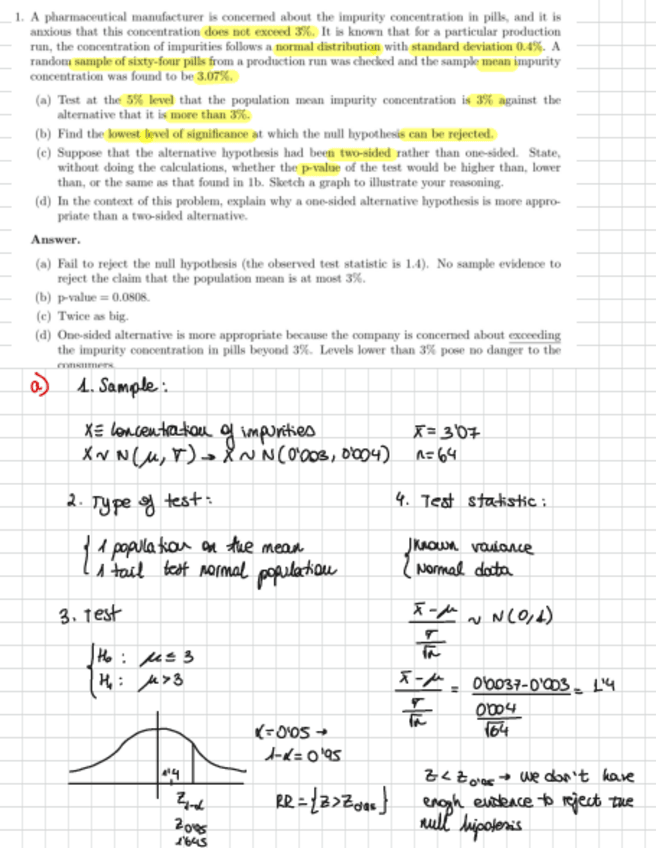 1. A pharmaceutical manufacturer is concerned about the impurity concentration in pills, and it is
anxious that this concentration does not exceed 3%. It is known that for a particular production
run, the concentration of impurities follows a normal distribution with standard deviation 0.4%. A
random sample of sixty-four pills from a production run was checked and the sample mean impurity
concentration was found to be 3.07%.
(a) Test at the 5% level that the population mean impurity concentration is 3% against the
alternative that it is more than 3%.
(b) Find the lowest level of significance at which the null hypothesis can be rejected.
(c) Suppose that the alternative hypothesis had been two-sided rather than one-sided. State,
without doing the calculations, whether the p-value of the test would be higher than, lower
than, or the same as that found in 1b. Sketch a graph to illustrate your reasoning.
(d) In the context of this problem, explain why a one-sided alternative hypothesis is more appro-
priate than a two-sided alternative.
Answer.
(a) Fail to reject the null hypothesis (the observed test statistic is 1.4). No sample evidence to
reject the claim that the population mean is at most 3%.
(b) p-value = 0.0808.
(c) Twice as big.
(d) One-sided alternative is more appropriate because the company is concerned about exceeding
the impurity concentration in pills beyond 3%. Levels lower than 3% pose no danger to the
consumers.
a) 1. Sample:
X≡ Concentration of impurities
x̄ = 3'07
X~N(μ, σ) → X̄ ~ N(0'003, 0'004)
n=64
2. Type of test:
1 population on the mean
1 tail test normal population
3. Test
H₀: μ ≤ 3
H₁: μ > 3
1'4
Z₁₋α
Z₀'₉₅
1'645
α=0'05 →
1-α=0'95
RR={Z>Z₀'₉₅}
4. Test statistic:
Known variance
Normal data
x̄-μ / σ/√n ~ N(0,1)
x̄-μ / σ/√n = 0'0037-0'003 / 0'004/√64 = 1'4
Z<Z₀'₉₅ → we don't have
enogh evidence to reject the
null hipotesis